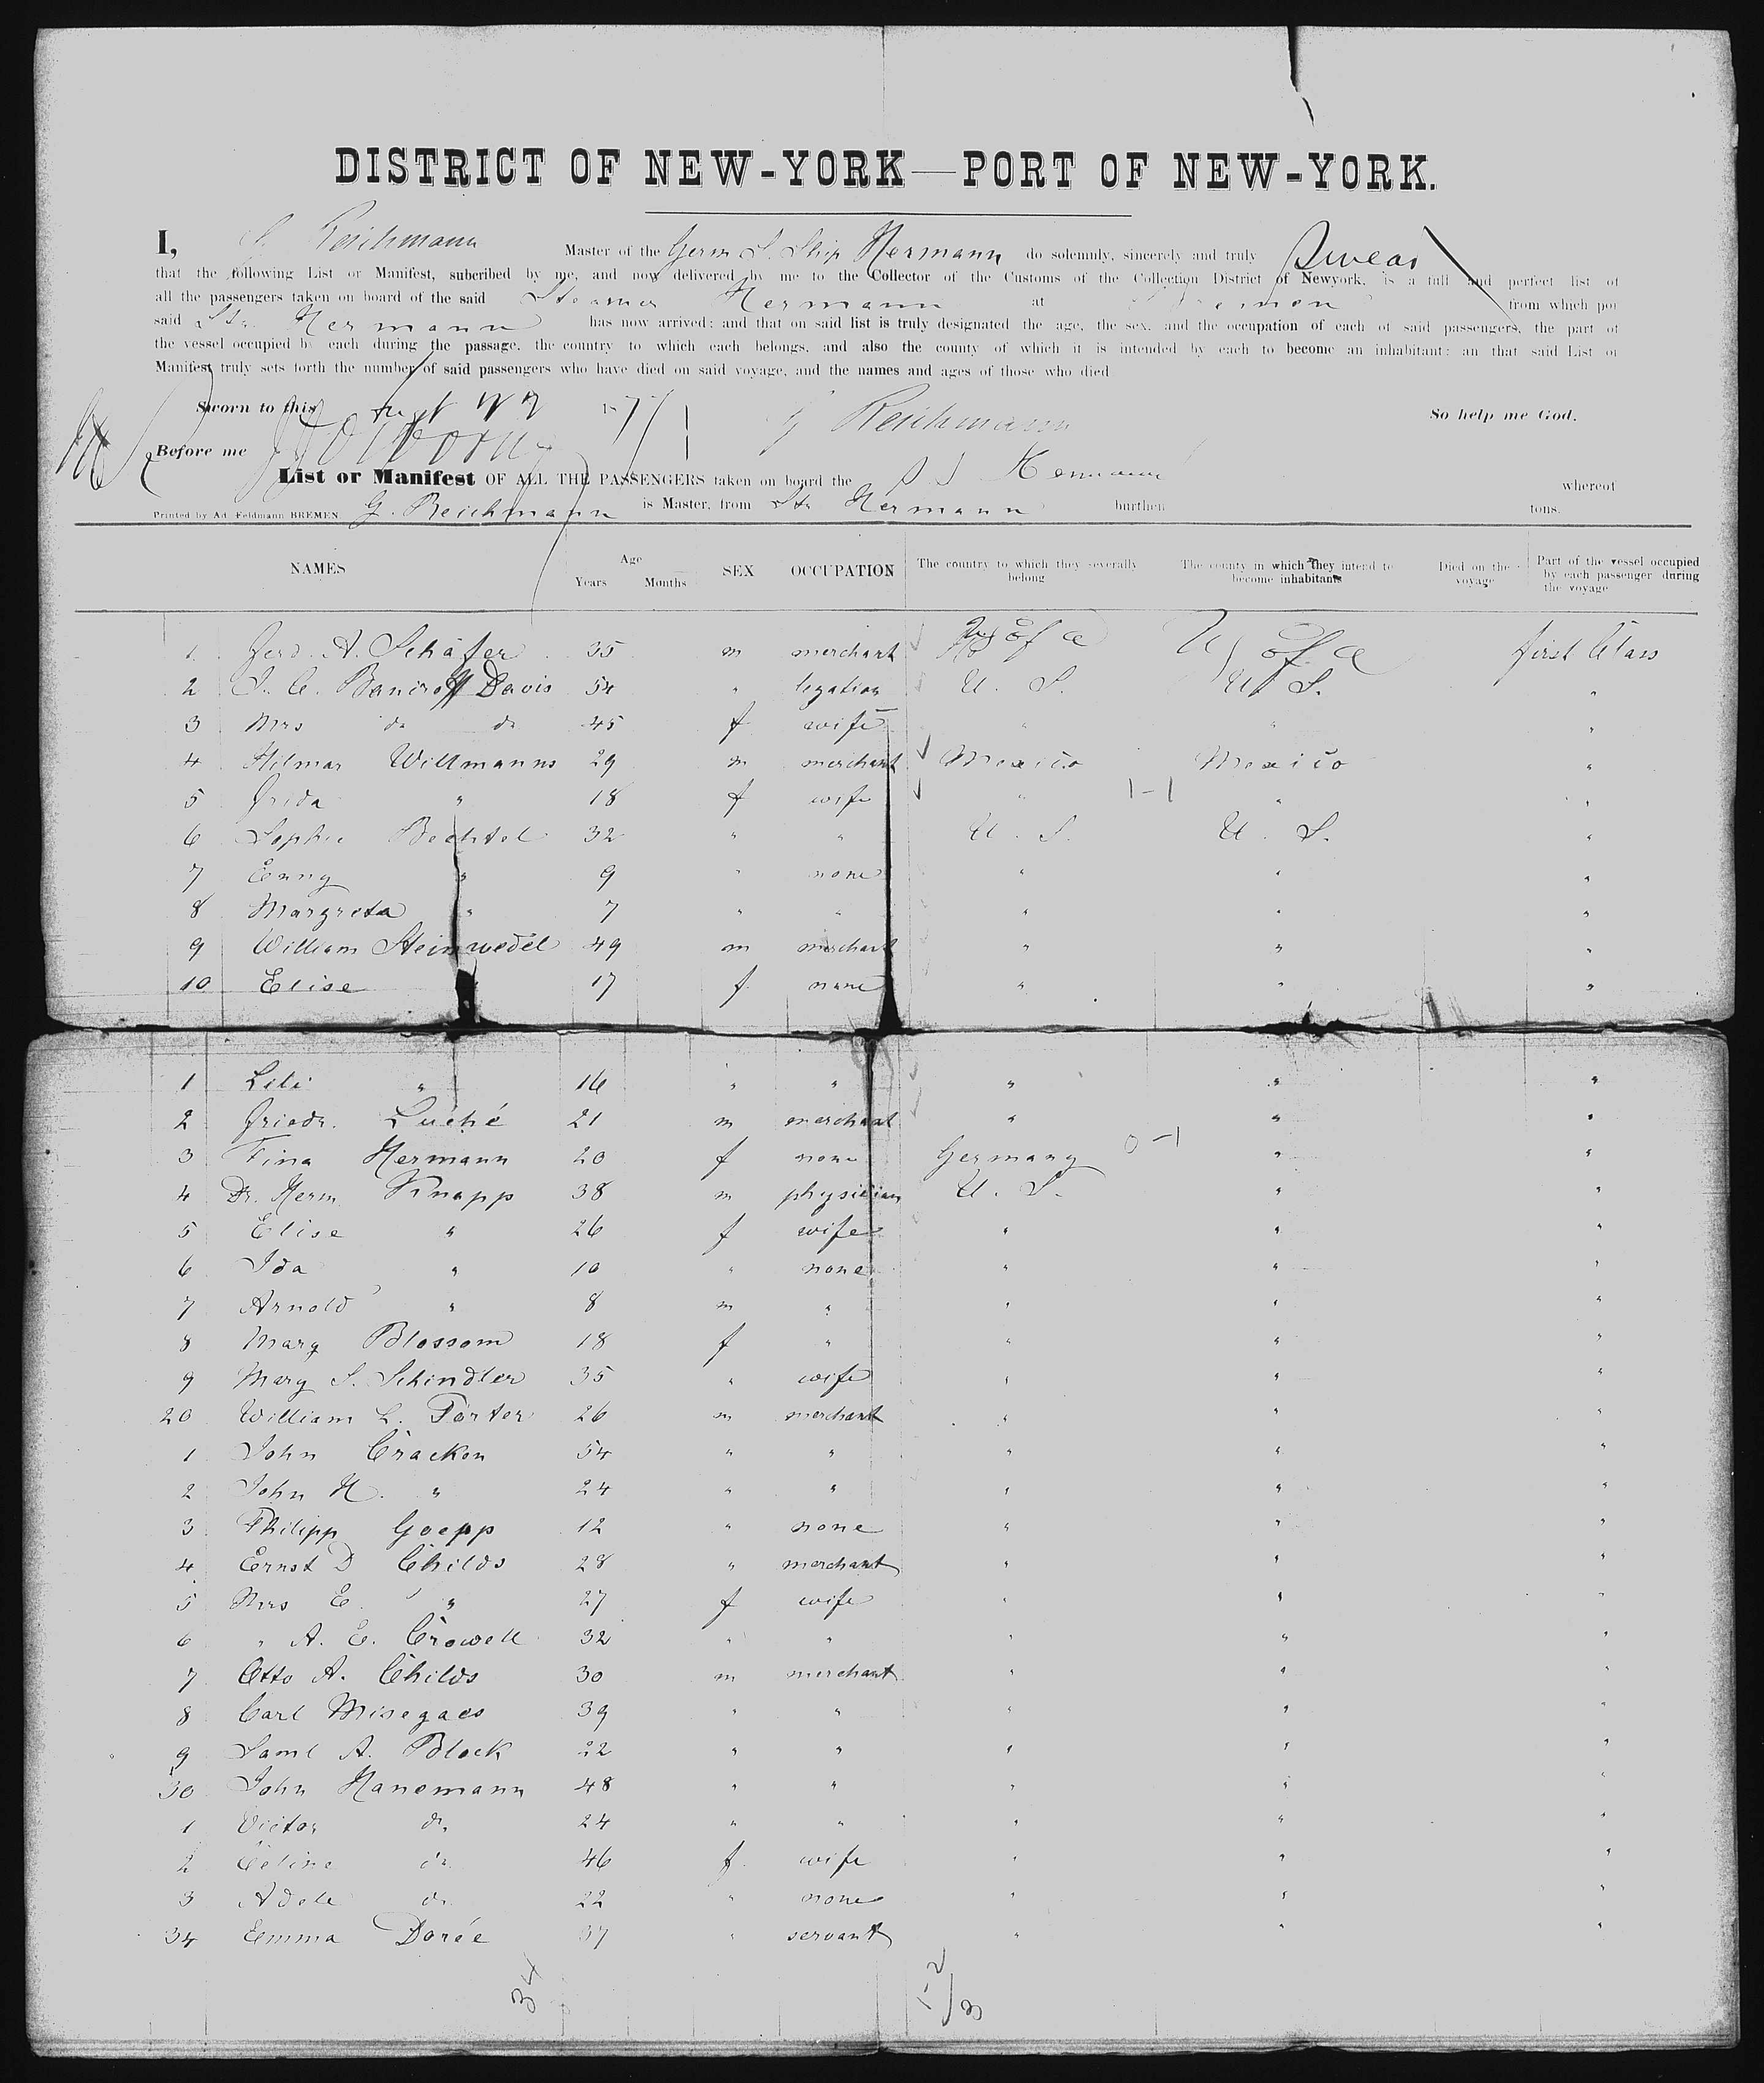 DISTRICT OF NEW-YORK—PORT OF NEW-YORK.
I, G Reichmann Master of the Germ S. Ship Hermann do solemnly, sincerely and truly Swear
that the following List or Manifest, subcribed by me, and now delivered by me to the Collector of the Customs of the Collection District of Newyork, is a full and perfect list of
all the passengers taken on board of the said Steamer Hermann at Bremen from which por
said Str. Hermann has now arrived; and that on said list is truly designated the age, the sex, and the occupation of each of said passengers, the part of
the vessel occupied by each during the passage, the country to which each belongs, and also the county of which it is intended by each to become an inhabitant; an that said List or
Manifest truly sets forth the number of said passengers who have died on said voyage, and the names and ages of those who died
Sworn to this 187 G Reichmann So help me God.
Before me
List or Manifest OF ALL THE PASSENGERS taken on board the S S Hermann whereof
Printed by Ad. Feldmann BREMEN. G. Reichmann is Master, from Str Hermann burthen tons.
NAMES Age Years Months SEX OCCUPATION The country to which they severally belong The county in which they intend to become inhabitants Died on the voyage Part of the vessel occupied by each passenger during the voyage
1 Ferd. A. Schäfer 35 m merchant U S of a U S of a first Class
2 J. C. Bancroft Davis 54 " legation U. S. U. S. "
3 Mrs do do 45 f wife " " "
4 Hilmar Willmanns 29 m merchant Mexico Mexico "
5 Frida " 18 f wife " 1-1 " "
6 Sophie Bechtel 32 " " U. S. U. S. "
7 Emny " 9 " none " " "
8 Margreta " 7 " " " " "
9 William Steinwedel 49 m merchant " " "
10 Elise 17 f none " " "
1 Lili " 16 " " " " "
2 Friedr. Luché 21 m merchant " " "
3 Tina Hermann 20 f none Germany 0-1 " "
4 Dr. Herm Knapp 38 m physician U. S. " "
5 Elise " 26 f wife " " "
6 Ida " 10 " none " " "
7 Arnold " 8 m " " " "
8 Mary Blossom 18 f " " " "
9 Mary S. Schindler 35 " wife " " "
20 William L. Porter 26 m merchant " " "
1 John Cracken 54 " " " " "
2 John H. " 24 " " " " "
3 Philipp Goepp 12 " none " " "
4 Ernst D Childs 28 " merchant " " "
5 Mrs E. " 27 f wife " " "
6 " A. E. Crowell 32 " " " " "
7 Otto A. Childs 30 m merchant " " "
8 Carl Misegaes 39 " " " " "
9 Saml A. Block 22 " " " " "
30 John Hanemann 48 " " " " "
1 Victor do 24 " " " " "
2 Celine do 46 f wife " " "
3 Adele do 22 " none " " "
34 Emma Dorée 37 " servant " " "
34 1-2/3